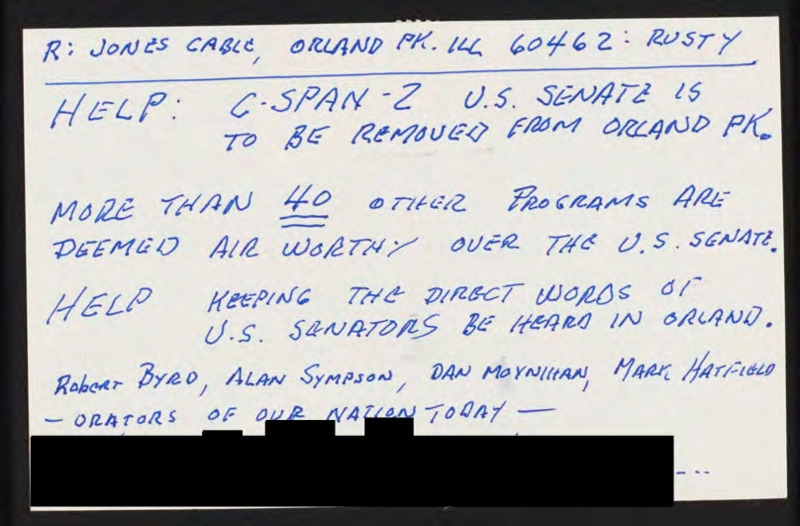 R: JONES CABLE, ORLAND PK. ILL 60462: RUSTY
HELP: C-SPAN-2 U.S. SENATE IS
TO BE REMOVED FROM ORLAND PK.
MORE THAN 40 OTHER PROGRAMS ARE
DEEMED AIR WORTHY OVER THE U.S. SENATE.
HELP KEEPING THE DIRECT WORDS OF
U.S. SENATORS BE HEARD IN ORLAND.
ROBERT BYRD, ALAN SYMPSON, DAN MOYNIHAN, MARK HATFIELD
- ORATORS OF OUR NATION TODAY -